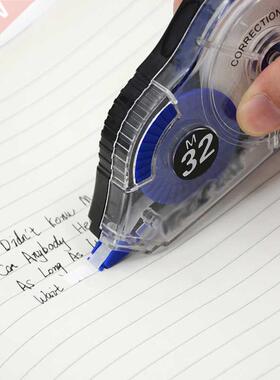 CORRECTION
M
32
Didn't Know M
Can Anybody He
As Long As
Wait